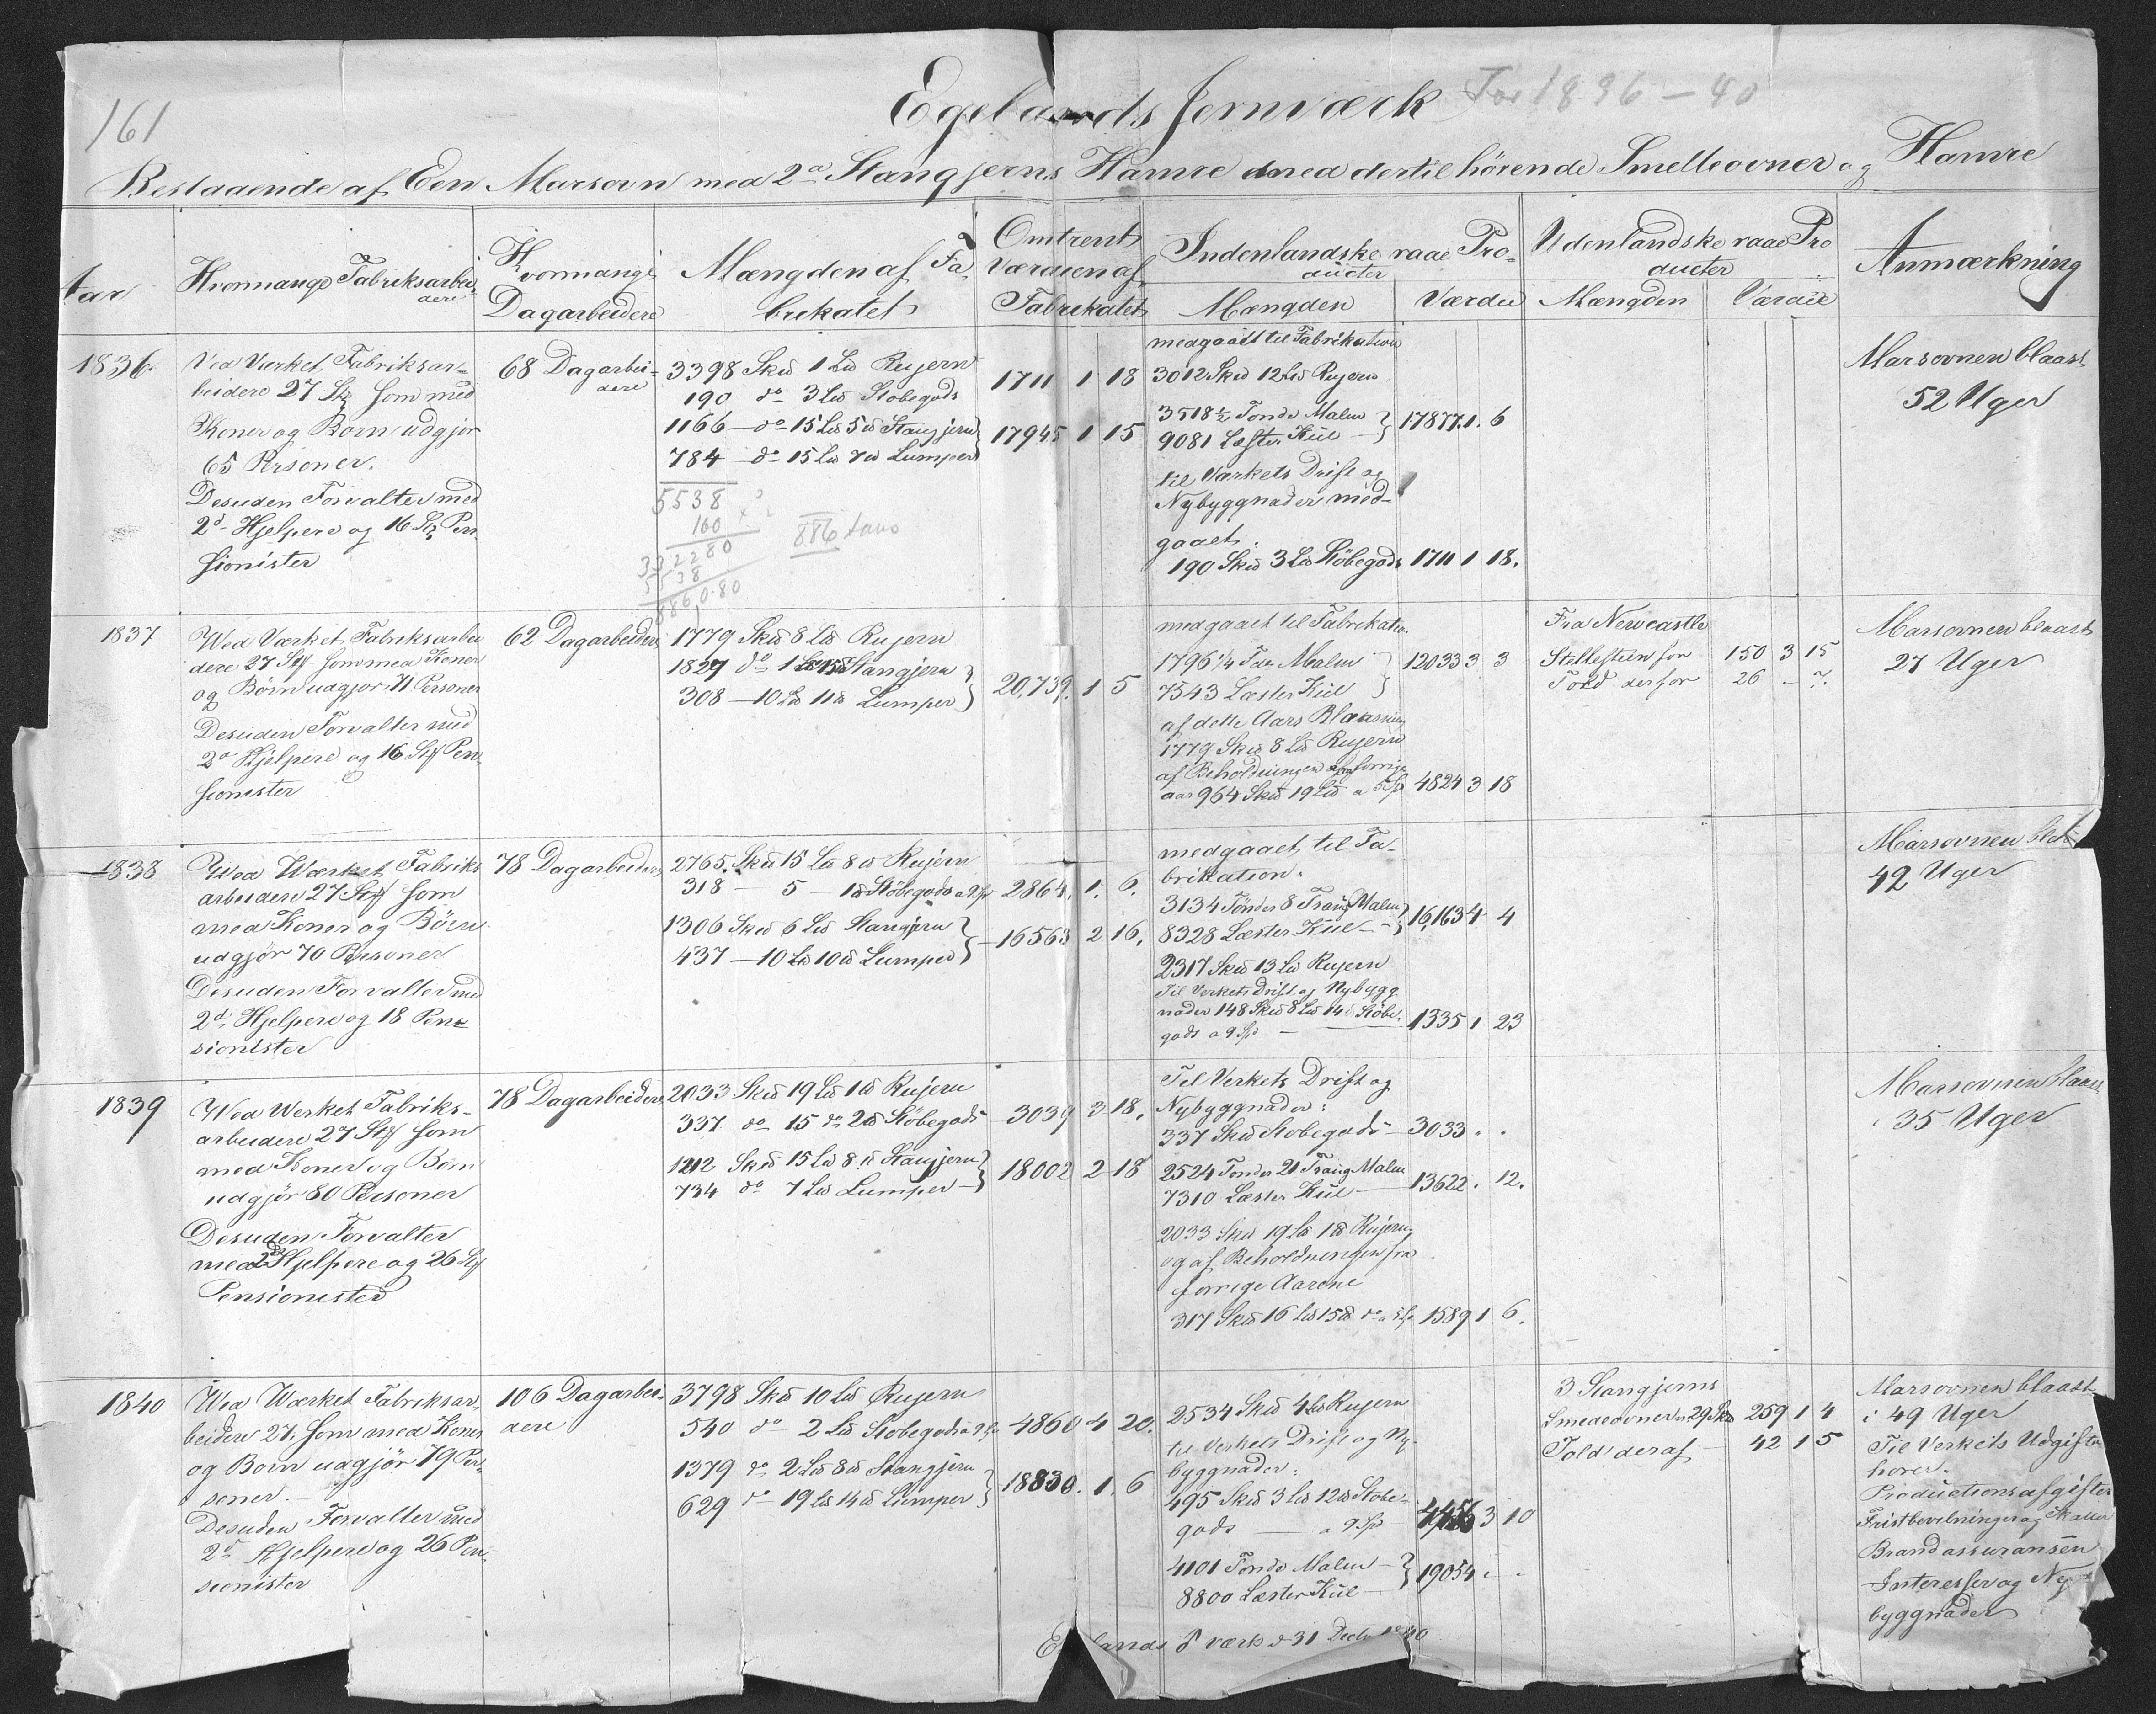 161
Egelands Jernværk For 1836-40
Bestaaende af Een Marsovn med 2de Stangjerns Hamre med dertil hörende Smelteovner og Hamre
Aar
Hvormange Fabriksarbei-
dere
Hvormange
Dagarbeidere
Mængden af Fa-
brikatet
Omtrent
Værdien af
Fabrikatet
Indenlandske raae Pro-
ducter
Mængden
Værdie
Udenlandske raae Pro
ducter
Mængden
Værdie
Anmærkning
1836
Ved Værket Fabriksar-
beidere 27 Stk som med
Koner og Børn udgjør
65 Personer.
Desuden Forvalter med
2de Hjelpere og 16 Stk Pen-
sionister
68 Dagarbei-
dere
3398 Skd 1 Ld Rujern
190 do 3 Ld Stobegods
1166 - do 15 Ld 5 d Stangjern
784 - do 15 Ld 7d Lumper
5538
160
332280
5538
8860.80
886 tons
1711 1 18
17945 1 15
medgaaet til Fabrikation
3012 Skd 12 Ld Rujern
3518½ Tonde Malm
9081 Læster Kul
17877. 1. 6
til Værkets Drift og
Nybyggnader med-
gaaet:
190 Skd 3 Ld Støbegods 1711 1 18.
Marsovnen blaast
52 Uger
1837
Wed Værket Fabriksarbei
dere 27 Stk som med Koner
og Børn udgjør 71 Personer
Desuden Forvalter med
2de Hjelpere og 16 Stk Pen-
sionister
62 Dagarbeidere
1779 Skd 8 Ld Rujern
1827 do 1 Ld 15d Stangjern
308 - 10 Ld 11d Lumper
20,739. 1 5
medgaaet til Fabrikation
1796¼ Tdr Malm
7543 Læster Kul
12033 3 3
af dette Aars Blaasning
1779 Skd 8 Ld Rujern
af Beholdningen fra forrige
aar 964 Skd 19 Ld a 5 Sp 4824 3 18
Fra Newcastle
Stellesteen for 150 3 15
Told derfor 26 - 7.
Marsovnen blaast
27 Uger
1838
Wed Værket Fabriks
arbeidere 27 Stk som
med Koner og Børn
udgjør 70 Personer
Desuden Forvalter med
2de Hjelpere og 18 Pen-
sionister
78 Dagarbeidere
2765. Skd 15 Ld 8 d Rujern
318 - 5 - 1d Støbegods a 9 Sp
2864. 1. 6.
1306 Skd 6 Ld Stangjern
437 - 10 Ld 10d Lumper
16563 2 16.
medgaaet til Fa-
brikation.
3134 Tønder 8 Traug Malm
8328 Læster Kul
16,163 4 4
2317 Skd 13 Ld Rujern
Til Verkets Drift og Nybygg
nader 148 Skd 8 Ld 14d Støbe-
gods a 9 Sp 1335 1 23
Marsovnen
42 Uger
1839
Wed Werket Fabriks-
arbeidere 27 Stk som
med Koner og Børn
udgjør 80 Personer
Desuden Forvalter
med 2de Hjelpere og 26 Stk
Pensionister
78 Dagarbeidere
2033 Skd 19 Ld 1d Rujern
337 do 15 do 2d Støbegods
3039 3 18.
1212 Skd 15 Ld 8 d Stangjern
734 do 7 Ld Lumper
18002 2 18
Til Verkets Drift og
Nybyggnader:
337 Skd Støbegods 3033 . .
2524 Tønder 21 Traug Malm
7310 Læster Kul
13622. 12.
2033 Skd 19 Ld 1d Rujern
og af Beholdningen fra
forrige Aarene
317 Skd 16 Ld 15d do a 5 Sp 1589 1 6.
Marsovnen blaast
35 Uger
1840
Wed Værket Fabriksar-
beidere 27, som med Koner
og Børn udgjør 79 Per-
soner.
Desuden Forvalter med
2de Hjelpere og 26 Pen-
sionister
106 Dagarbei-
dere
3798 Skd 10 Ld Rujern
540 do 2 Ld Støbegods a 9 Sp
4860 4 20.
1379 do 2 Ld 8d Stangjern
629 do 19 Ld 14d Lumper
18830. 1. 6
2534 Skd 4 Ld Rujern
til Verkets Drift og Ny-
byggnader:
495 Skd 3 Ld 12d Støbe-
gods a 9 Sp 4456 3 10
4101 Tonde Malm
8800 Læster Kul
19054 . .
3 Stangjerns
Smedeovner 259 1 4
Told deraf 42 1 5
Marsovnen blaast
i 49 Uger
Til Verkets Udgifter
hører.
Productionsafgifter
Fristbevilninger og Skatter
Brandassuransen
Interesser og Ny-
byggnader
værk d 31 Decbr 1840